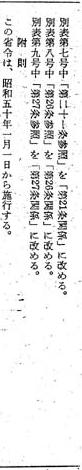 別表第七号中「第二十一条参照」を「第21条関係」に改める。
別表第八号中「第26条参照」を「第26条関係」に改める。
別表第九号中「第27条参照」を「第27条関係」に改める。
附 則
この省令は、昭和五十年一月一日から施行する。